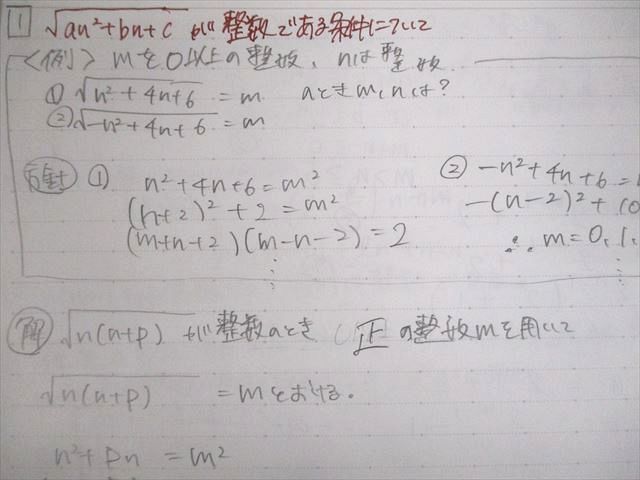 1 √an²+bn+c が整数である条件について
<例> mを0以上の整数、nは整数
① √n²+4n+6 = m のときm,nは?
② √-n²+4n+6 = m
方針 ① n²+4n+6=m²
(n+2)²+2=m²
(m+n+2)(m-n-2)=2
⋮
② -n²+4n+6=
-(n-2)²+10
∴ m=0,1,
⋮
解 √n(n+p) が整数のとき 正の整数mを用いて
√n(n+p) =mとおける。
n²+pn =m²